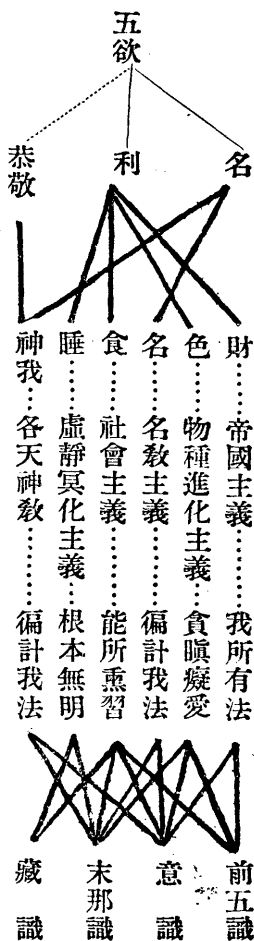 五欲
名
利
恭敬
財………帝國主義…………我所有法
色………物種進化主義……貪瞋癡愛
名………名教主義…………徧計我法
食………社會主義…………能所熏習
睡………虛靜冥化主義……根本無明
神我……各天神教…………徧計我法
前五識
意識
末那識
藏識